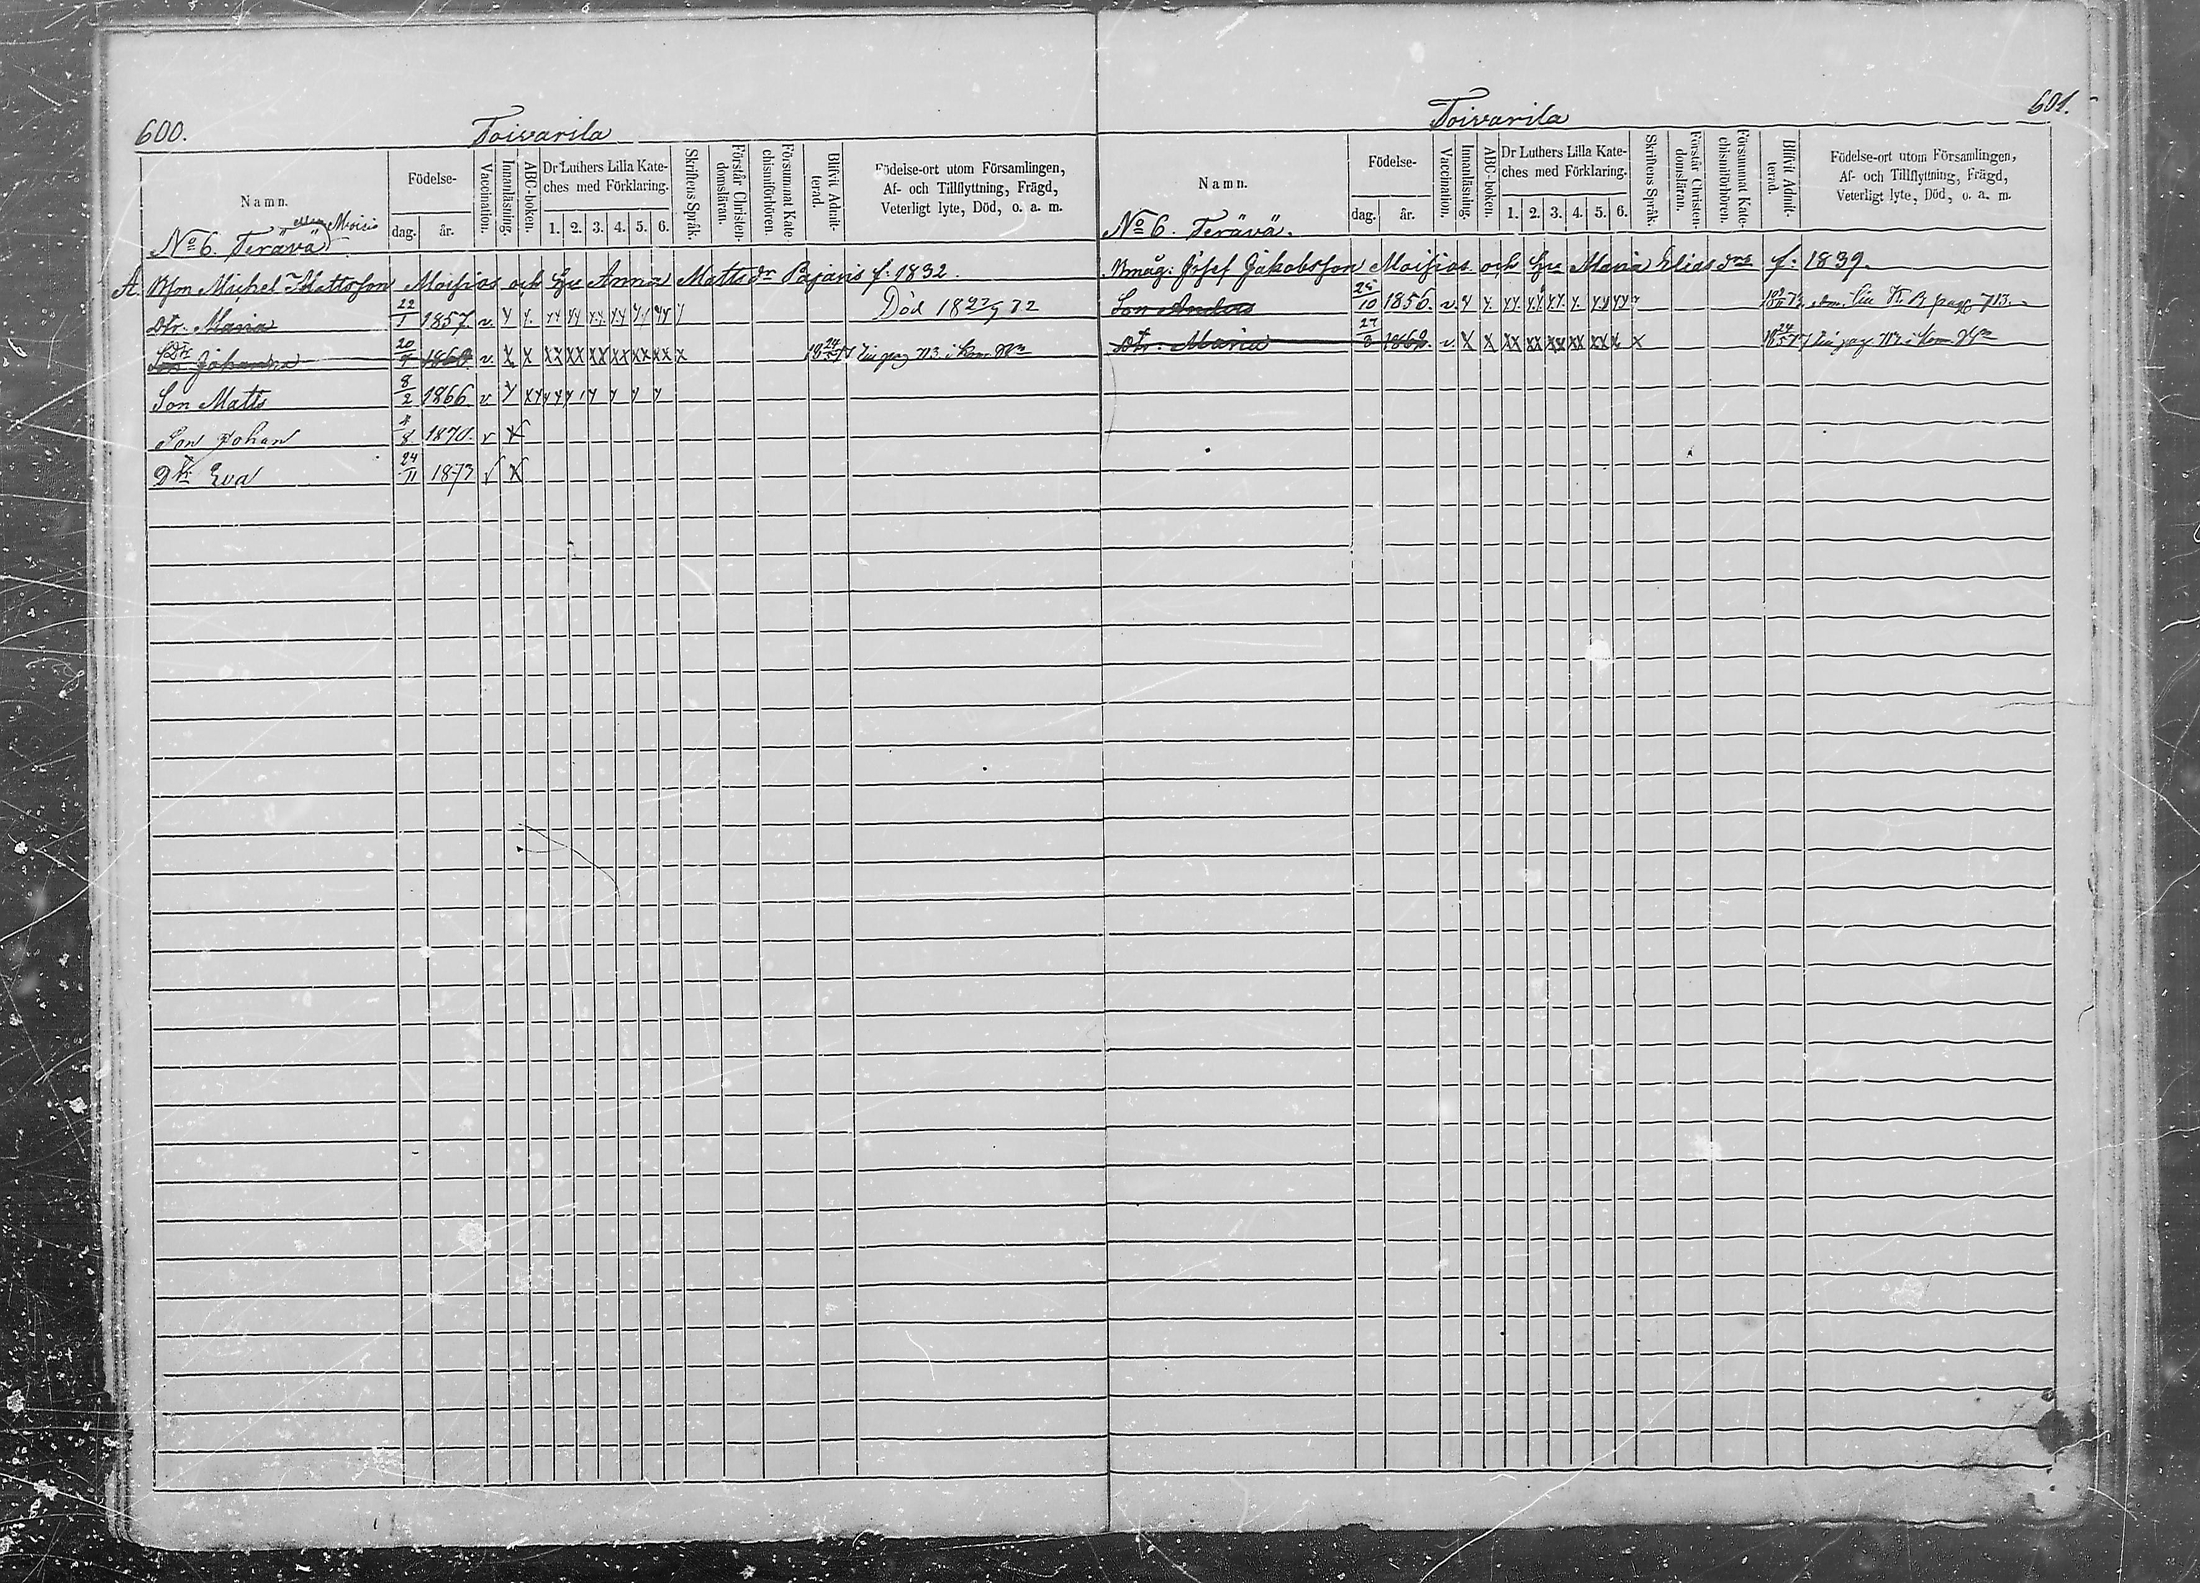 600.
Toivarila
Namn.
Födelse-
dag.
år.
Vaccination.
Innanläsning.
ABC-boken.
Dr Luthers Lilla Kate-
ches med Förklaring.
1. 2. 3. 4. 5. 6.
Skriftens Språk.
Förstår Christen-
domsläran.
Försummat Kate-
chismiförhören.
Blifvit Admit-
terad.
Födelse-ort utom Församlingen,
Af- och Tillflyttning, Frägd,
Veterligt lyte, Död, o. a. m.
eller Moisio
No 6. Terävä
A. Michel Mattsson Moisios och Hu Anna Mattsdr Pajaris f. 1832.
Dtr. Maria 22/1 1857. v Död
Dtr Johanna 20/4 v x x xx xx xx xx xx xx x pag 713 i Kom. Bn
Son Matts 8/2 1866. v
Son Johan 4/8 1870. v x
Dtr Eva 24/11 1873 v x
601.
Toivarila
Namn.
Födelse-
dag.
år.
Vaccination.
Innanläsning.
ABC-boken.
Dr Luthers Lilla Kate-
ches med Förklaring.
1. 2. 3. 4. 5. 6.
Skriftens Språk.
Förstår Christen-
domsläran.
Försummat Kate-
chismiförhören.
Blifvit Admit-
terad.
Födelse-ort utom Församlingen,
Af- och Tillflyttning, Frägd,
Veterligt lyte, Död, o. a. m.
No 6. Terävä.
Bmåg: Josef Jakobsson Moisios och Hu Maria Eliasdr f. 1839.
Son Anders 25/10 1856. v K. B. pag 713.
Dtr. Maria v x x xx xx xx xx xx x x pag 713 i Kom. Bn